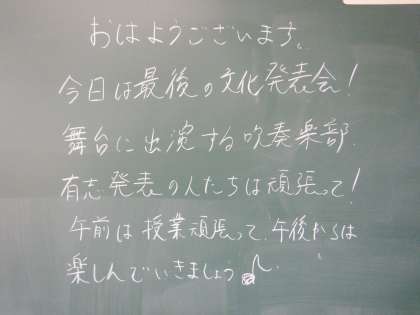 おはようございます。
今日は最後の文化発表会!
舞台に出演する吹奏楽部.
有志発表の人たちは頑張って!
午前は授業頑張って、午後からは
楽しんでいきましょう